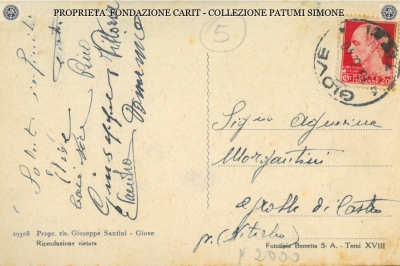 PROPRIETA' FONDAZIONE CARIT - COLLEZIONE PATUMI SIMONE
5
GIOVE
Saluti infiniti
Pino
Vittorio
Giuseppe
Sandro Domenico
Sig.na Agnesina
Morgantini
Grotte di Castro
pr. (Viterbo)
29308 Propr. ris. Giuseppe Santini - Giove
Riproduzione vietata
Fototipia Berretta S. A. - Terni XVIII